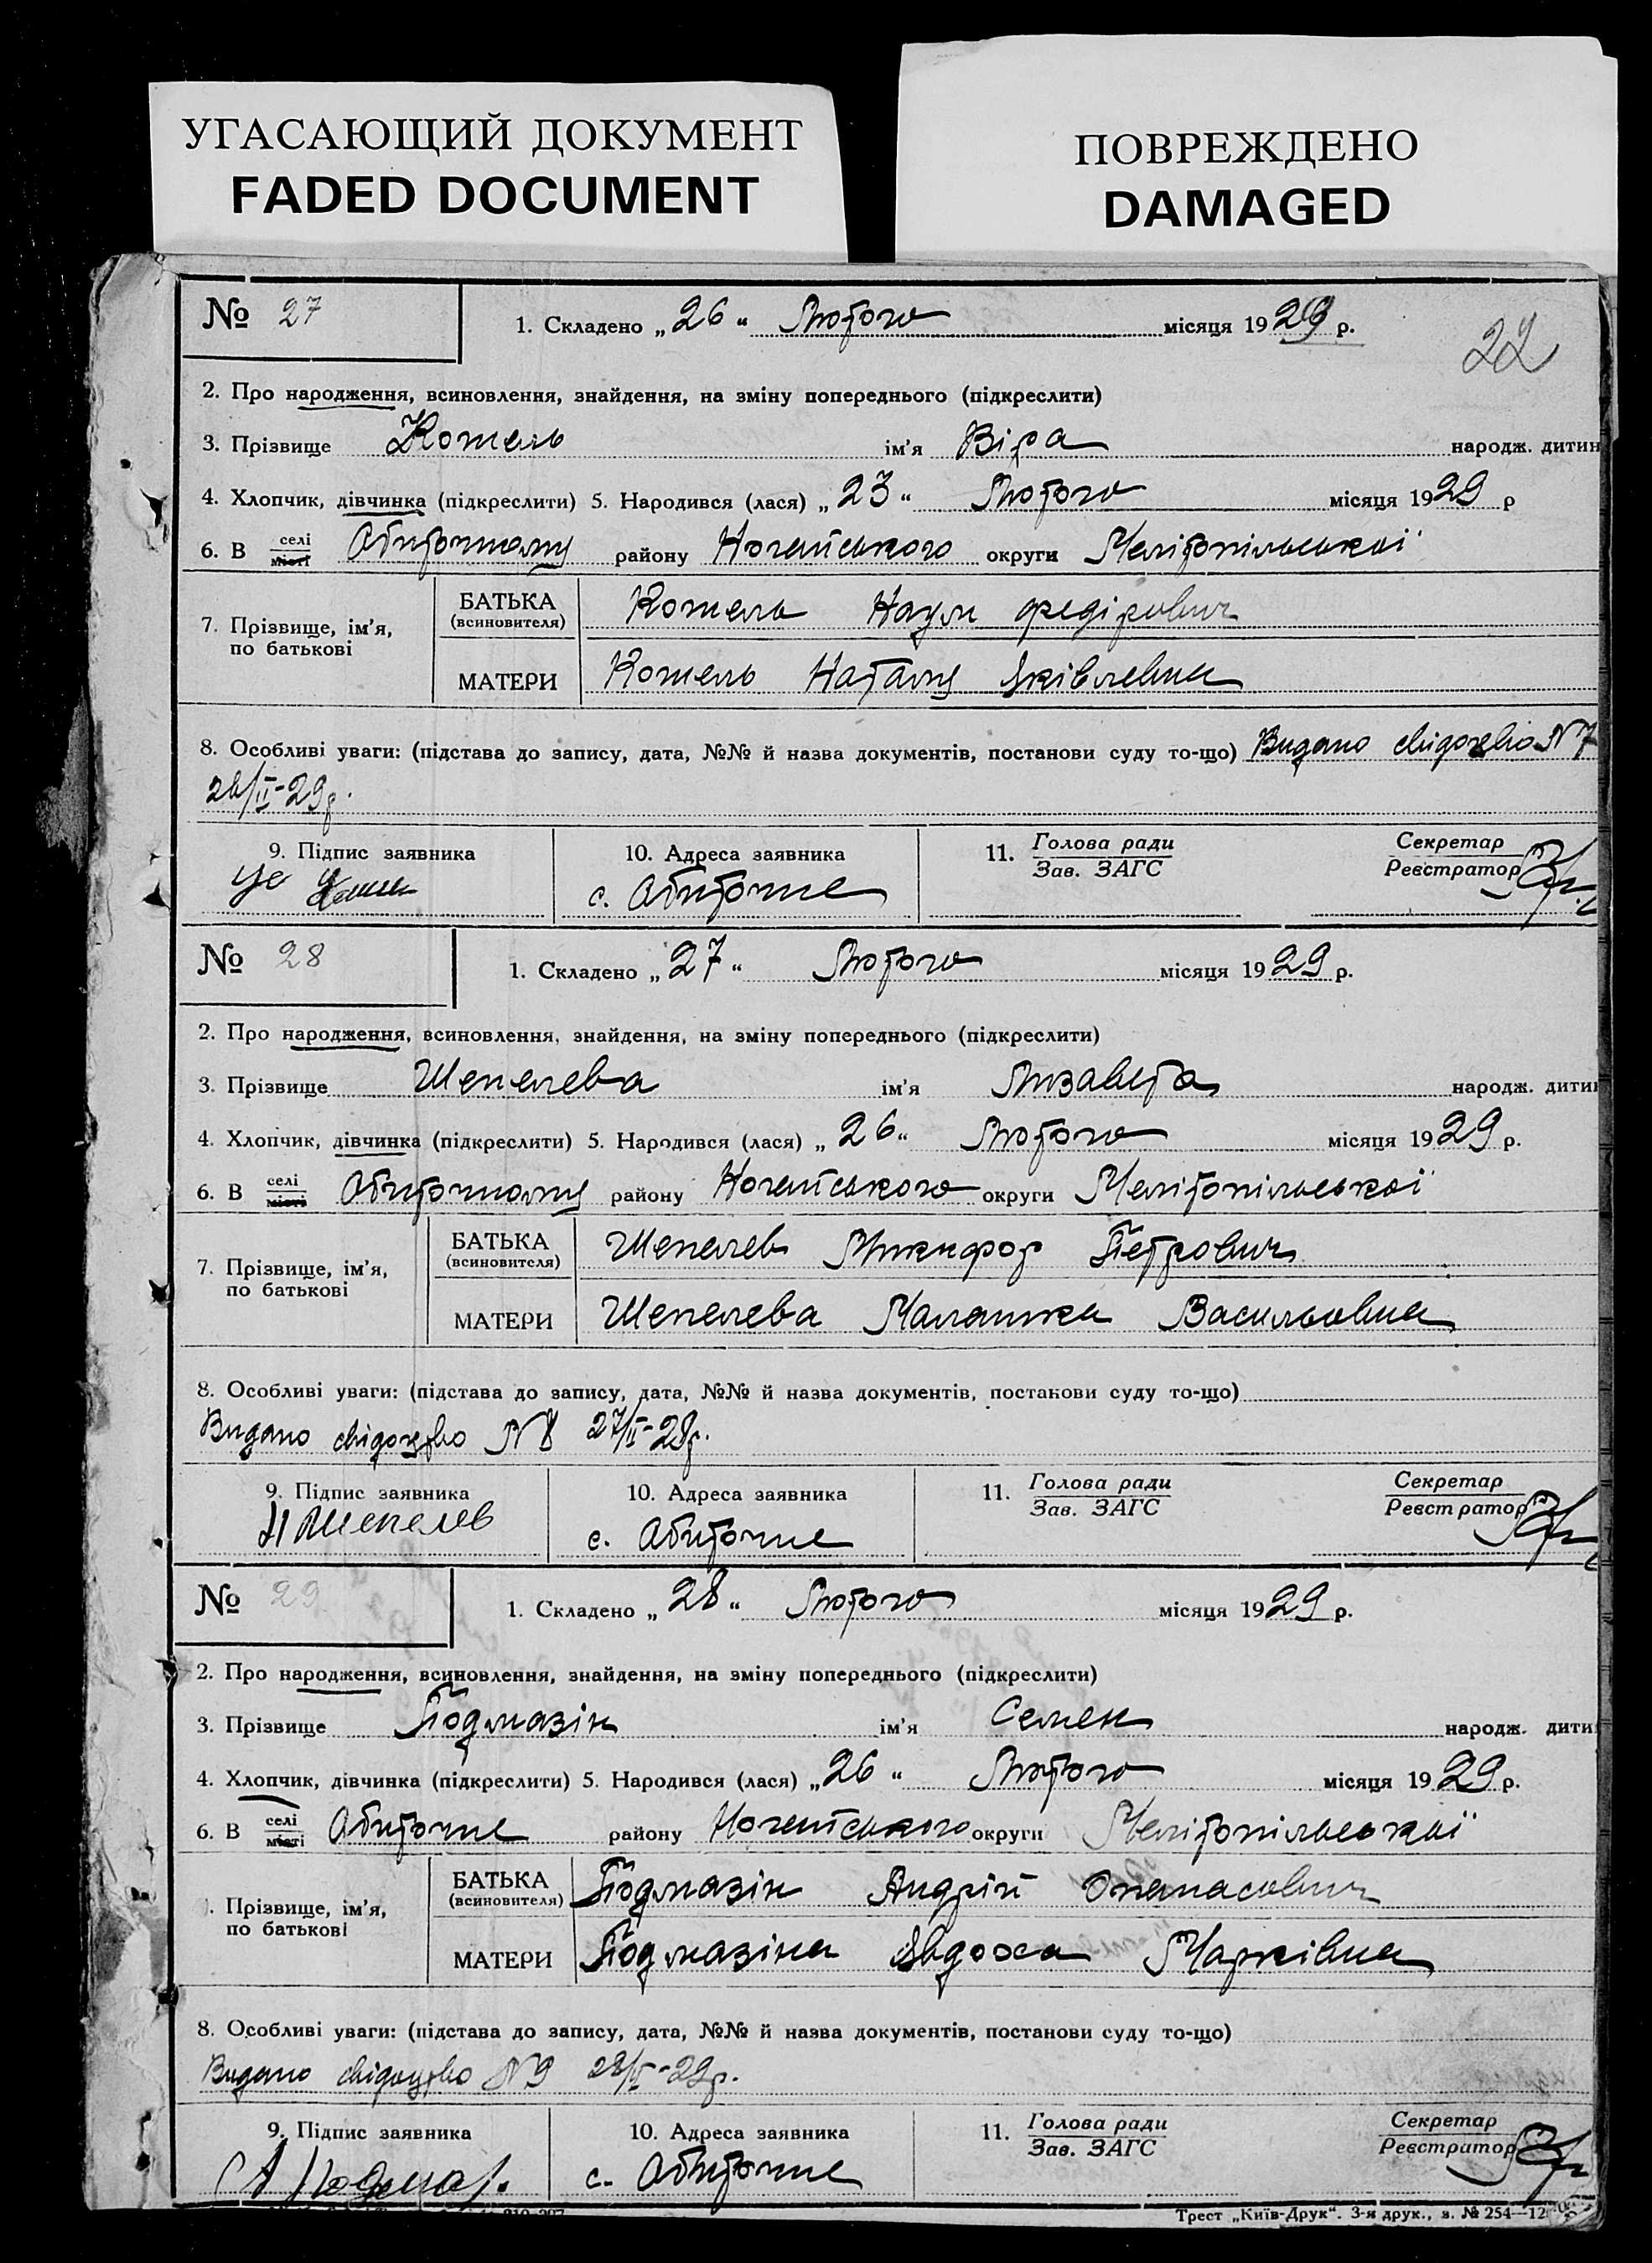 УГАСАЮЩИЙ ДОКУМЕНТ
FADED DOCUMENT
ПОВРЕЖДЕНО
DAMAGED
№ 27
1. Складено „26“ Лютого місяця 1929 р.
22
2. Про народження, всиновлення, знайдення, на зміну попереднього (підкреслити)
3. Прізвище Котель ім'я Віра народж. дитин
4. Хлопчик, дівчинка (підкреслити) 5. Народився (лася) „23“ Лютого місяця 1929 р
6. В селі місті Обиточному району Ногайського округи Мелітопільської
7. Прізвище, ім'я, по батькові
БАТЬКА (всиновителя) Котель Наум Федірович
МАТЕРИ Котель Наталя Яківлевна
8. Особливі уваги: (підстава до запису, дата, №№ й назва документів, постанови суду то-що) Видано свідоцтво №7
26/II-29р.
9. Підпис заявника
10. Адреса заявника
с. Обиточне
11. Голова ради
Зав. ЗАГС
Секретар
Реєстратор
№ 28
1. Складено „27“ Лютого місяця 1929 р.
2. Про народження, всиновлення, знайдення, на зміну попереднього (підкреслити)
3. Прізвище Шепелева ім'я Лизавета народж. дитин
4. Хлопчик, дівчинка (підкреслити) 5. Народився (лася) „26“ Лютого місяця 1929 р.
6. В селі місті Обиточному району Ногайського округи Мелітопільської
7. Прізвище, ім'я, по батькові
БАТЬКА (всиновителя) Шепелев Микифор Петрович
МАТЕРИ Шепелева Малашка Васильовна
8. Особливі уваги: (підстава до запису, дата, №№ й назва документів, постанови суду то-що)
Видано свідоцтво №8 27/II-29р.
9. Підпис заявника
Н Шепелев
10. Адреса заявника
с. Обиточне
11. Голова ради
Зав. ЗАГС
Секретар
Реєстратор
№ 29
1. Складено „28“ Лютого місяця 1929 р.
2. Про народження, всиновлення, знайдення, на зміну попереднього (підкреслити)
3. Прізвище Подмазін ім'я Семен народж. дити
4. Хлопчик, дівчинка (підкреслити) 5. Народився (лася) „26“ Лютого місяця 1929 р.
6. В селі місті Обиточне району Ногайського округи Мелітопільської
Прізвище, ім'я, по батькові
БАТЬКА (всиновителя) Подмазін Андрій Опанасович
МАТЕРИ Подмазіна Явдоха Марківна
8. Особливі уваги: (підстава до запису, дата, №№ й назва документів, постанови суду то-що)
Видано свідоцтво №9 28/II-29р.
9. Підпис заявника
10. Адреса заявника
с. Обиточне
11. Голова ради
Зав. ЗАГС
Секретар
Реєстратор
Трест „Київ-Друк“. 3-я друк., з. № 254—12